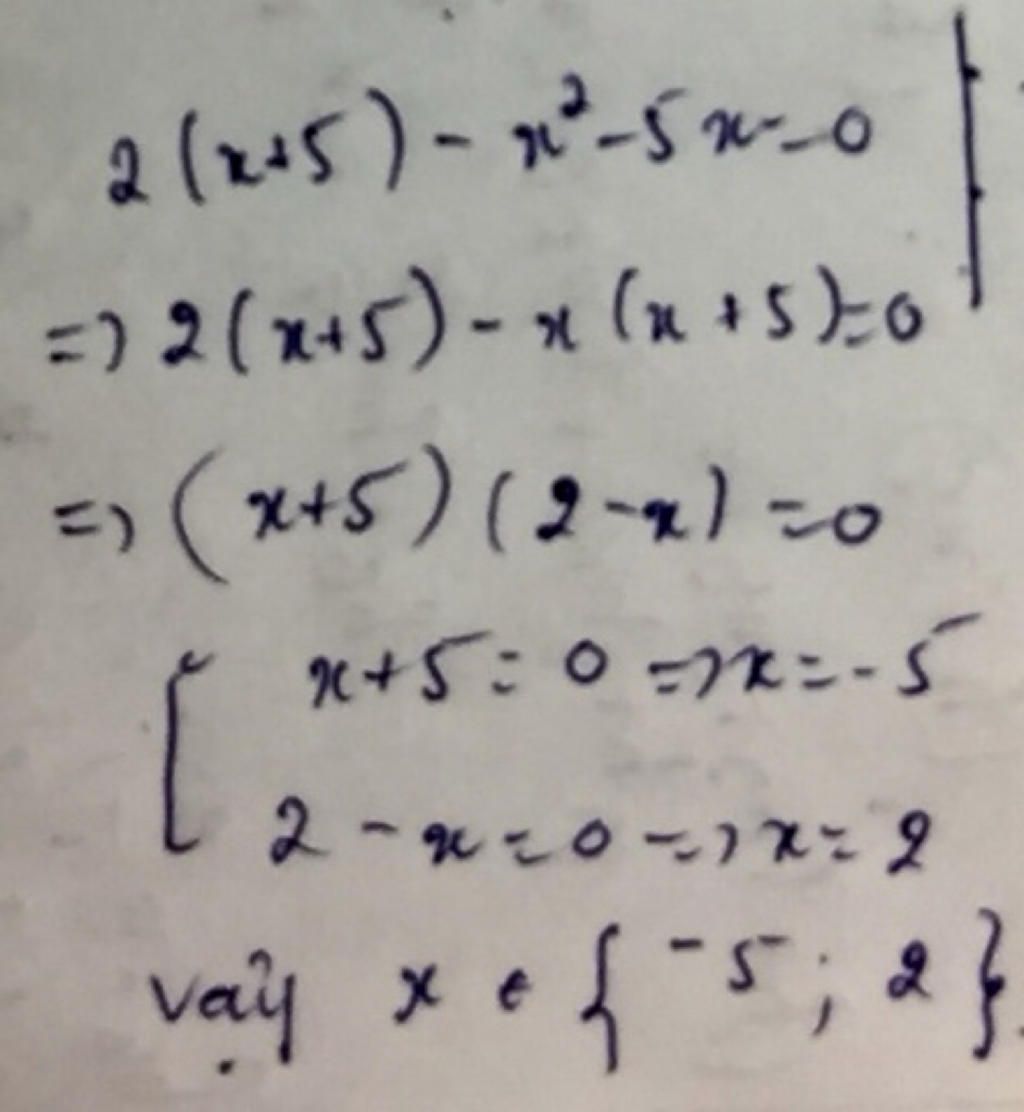 2(x+5) - x² - 5x = 0
=> 2(x+5) - x(x+5) = 0
=> (x+5)(2-x) = 0
[ x+5 = 0 => x = -5
2 - x = 0 => x = 2
vậy x ∈ { -5 ; 2 }